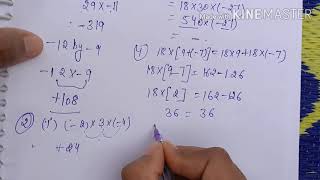 29 x -11
:- -319
-12 by -9
-12 x -9
+108
2) (i) (-2) x 3 x (-4)
+24
18 x 30 x (-27)
540 x (-27)
4) 18 x [9+(-7)] = 18 x 9 + 18 x (-7)
18 x [9-7] = 162 - 126
18 x [2] = 162 - 126
36 = 36
Made with KINEMASTER